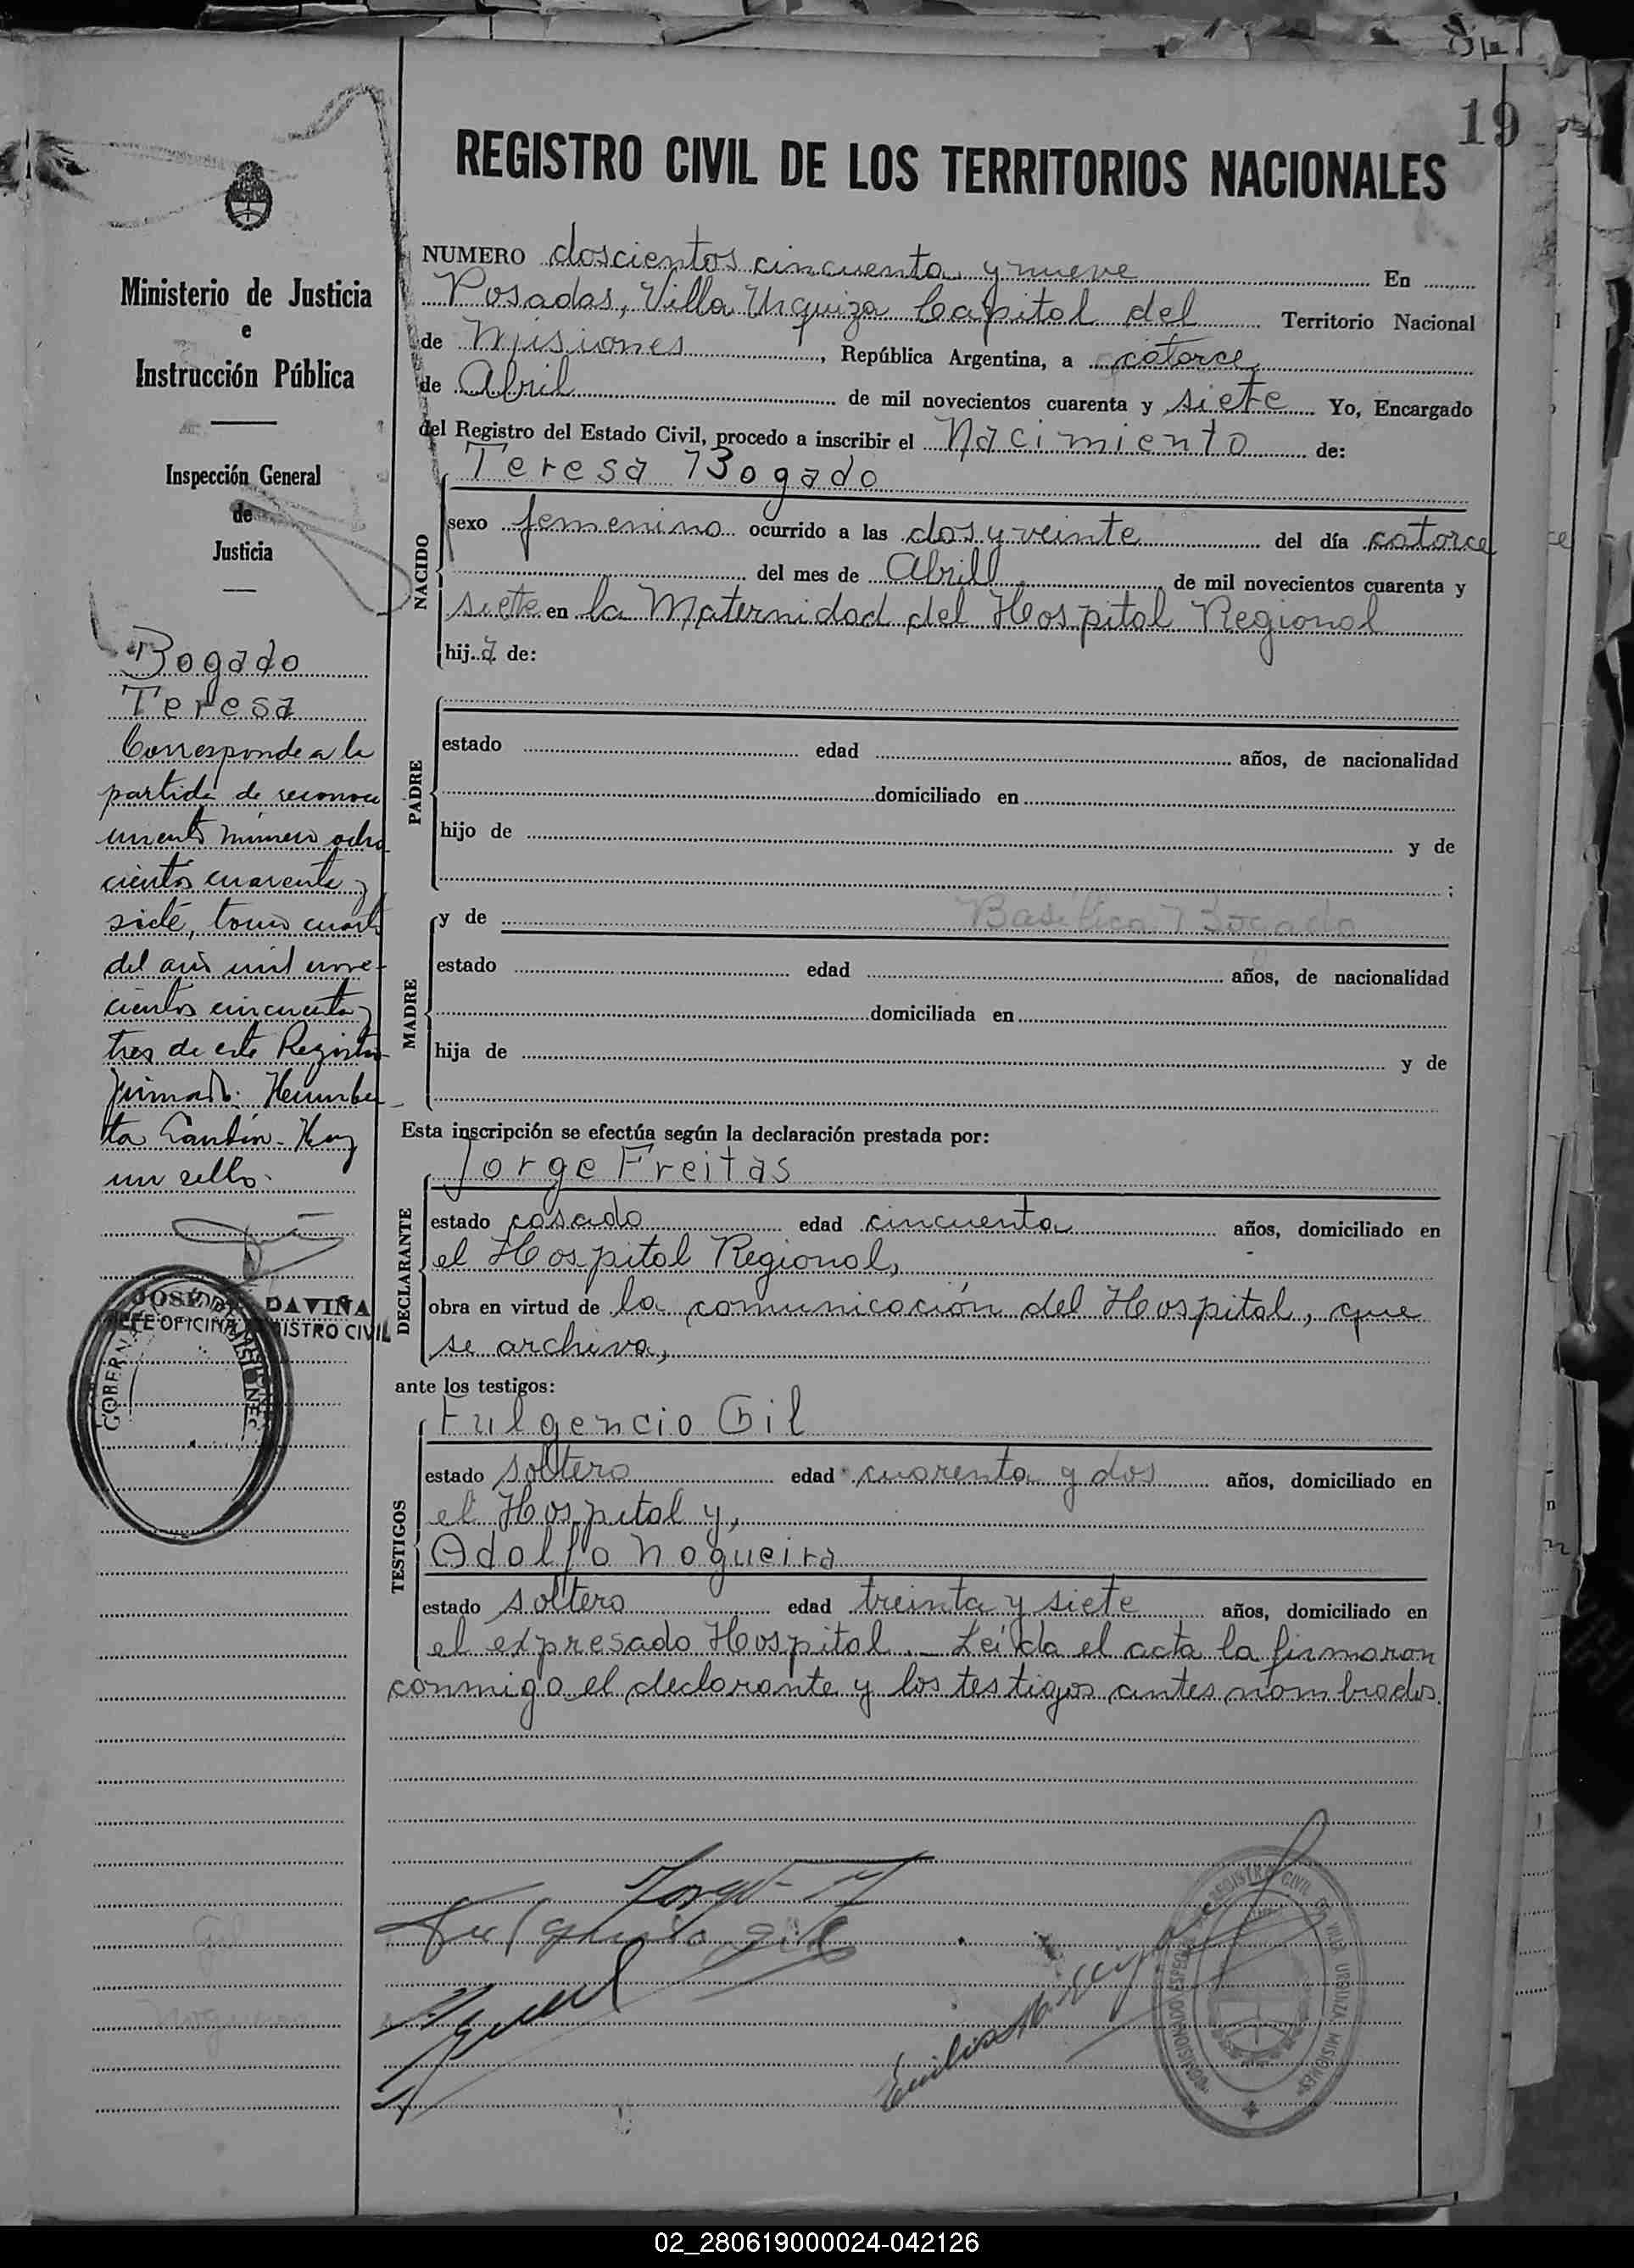 19
REGISTRO CIVIL DE LOS TERRITORIOS NACIONALES
Ministerio de Justicia
e
Instrucción Pública
Inspección General
de
Justicia
Bogado
Teresa
Corresponde a la
partida de reconoci
miento número ocho
cientos cuarenta y
siete, tomo cuarto
del año mil nove-
cientos cincuenta y
tres de este Registro
firmado: Humber
ta
Hay
un sello.
JOSÉ DAVIÑA
JEFE OFICINA REGISTRO CIVIL
NUMERO doscientos cincuenta y nueve En
Posadas, Villa Urquiza Capital del Territorio Nacional
de Misiones, República Argentina, a catorce
de Abril de mil novecientos cuarenta y siete Yo, Encargado
del Registro del Estado Civil, procedo a inscribir el Nacimiento de:
Teresa Bogado
NACIDO
sexo femenino ocurrido a las dos y veinte del día catorce
del mes de Abril de mil novecientos cuarenta y
siete en la Maternidad del Hospital Regional
hij a de:
PADRE
estado edad años, de nacionalidad
domiciliado en
hijo de y de
;
MADRE
y de Basilica Bogado
estado edad años, de nacionalidad
domiciliada en
hija de y de
Esta inscripción se efectúa según la declaración prestada por:
Jorge Freitas
DECLARANTE
estado casado edad cincuenta años, domiciliado en
el Hospital Regional,
obra en virtud de la comunicación del Hospital, que
se archiva,
ante los testigos:
Fulgencio Gil
TESTIGOS
estado soltero edad cuarenta y dos años, domiciliado en
el Hospital y,
Adolfo Nogueira
estado soltero edad treinta y siete años, domiciliado en
el expresado Hospital. Leída el acta la firmaron
conmigo el declarante y los testigos antes nombrados.
Fulgencio Gil
02_280619000024-042126